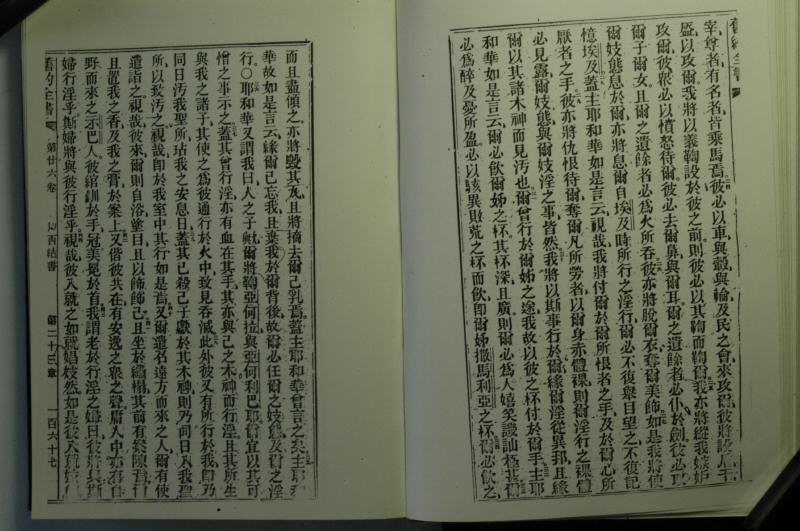 舊約全書
宰尊者有名者皆乘馬焉彼必以車與轂與輪及民之會來攻爾彼將設
盛以攻爾我將以義鞫設於彼之前則彼必以其鞫而鞫爾我亦將縱我嫉妒
攻爾彼輩必以憤怒待爾彼必去爾鼻與爾耳爾之遺餘者必仆於劍彼必取
爾子爾女且爾之遺餘者必為火所吞彼亦將脫爾衣奪爾美飾如是我將使
爾妓態息於爾亦將息爾自埃及時所行之淫行爾必不復舉目望之不復記
憶埃及蓋主耶和華如是言云視哉我將付爾於爾所恨者之手及於爾心所
厭者之手彼亦將以仇恨待爾奪爾凡所勞者以爾身赤體裸則爾淫行之裸體
必見露爾妓態與爾妓淫之事皆然我將以斯事行於爾緣爾淫從異邦且緣
爾以其諸木神而見污也爾曾行於爾姊之途我故以彼之杯付於爾手主耶
和華如是言云爾必飲爾姊之杯其杯深且廣則爾必為人嬉笑譏訕極其
必為醉及憂所盈必以駭異與荒之杯而飲即爾姊撒馬利亞之杯爾必飲之
而且盡傾之亦將毀其瓦且將摘去爾己乳焉蓋主耶和華曾言之矣主耶和
華故如是言云緣爾已忘我且棄我於爾背後故爾必任爾之妓態及爾之淫
行〇耶和華又謂我曰人之子歟爾將鞫亞何拉與亞何利巴耶爾宜以其可
憎之事示之蓋其曾行淫亦有血在其手其亦與己之木神而行淫且其所生
與我之諸子其使之為彼通行於火中致見吞滅此外彼又有所行於我即乃
同日污我聖所玷我之安息日蓋其已殺己子獻於其木神則乃同日入我聖
所以致污之視哉即於我室中其行如是焉又爾遣召遠方而來之人爾有使
遣詣之視哉彼來爾則自浴塗目且以飾飾己且坐於繡榻其前有案陳焉爾
且置我之香及我之膏於案上又偕彼共在有安逸之衆之聲庸人中亦有自
野而來之示巴人彼綰釧於手冠美冕於首我謂老於行淫之婦曰彼將與斯
婦行淫乎斯婦將與彼行淫乎視哉彼入就之如就娼妓然如是彼入就
舊約全書 第廿六卷 以西結書 第二十三章 一百六十七